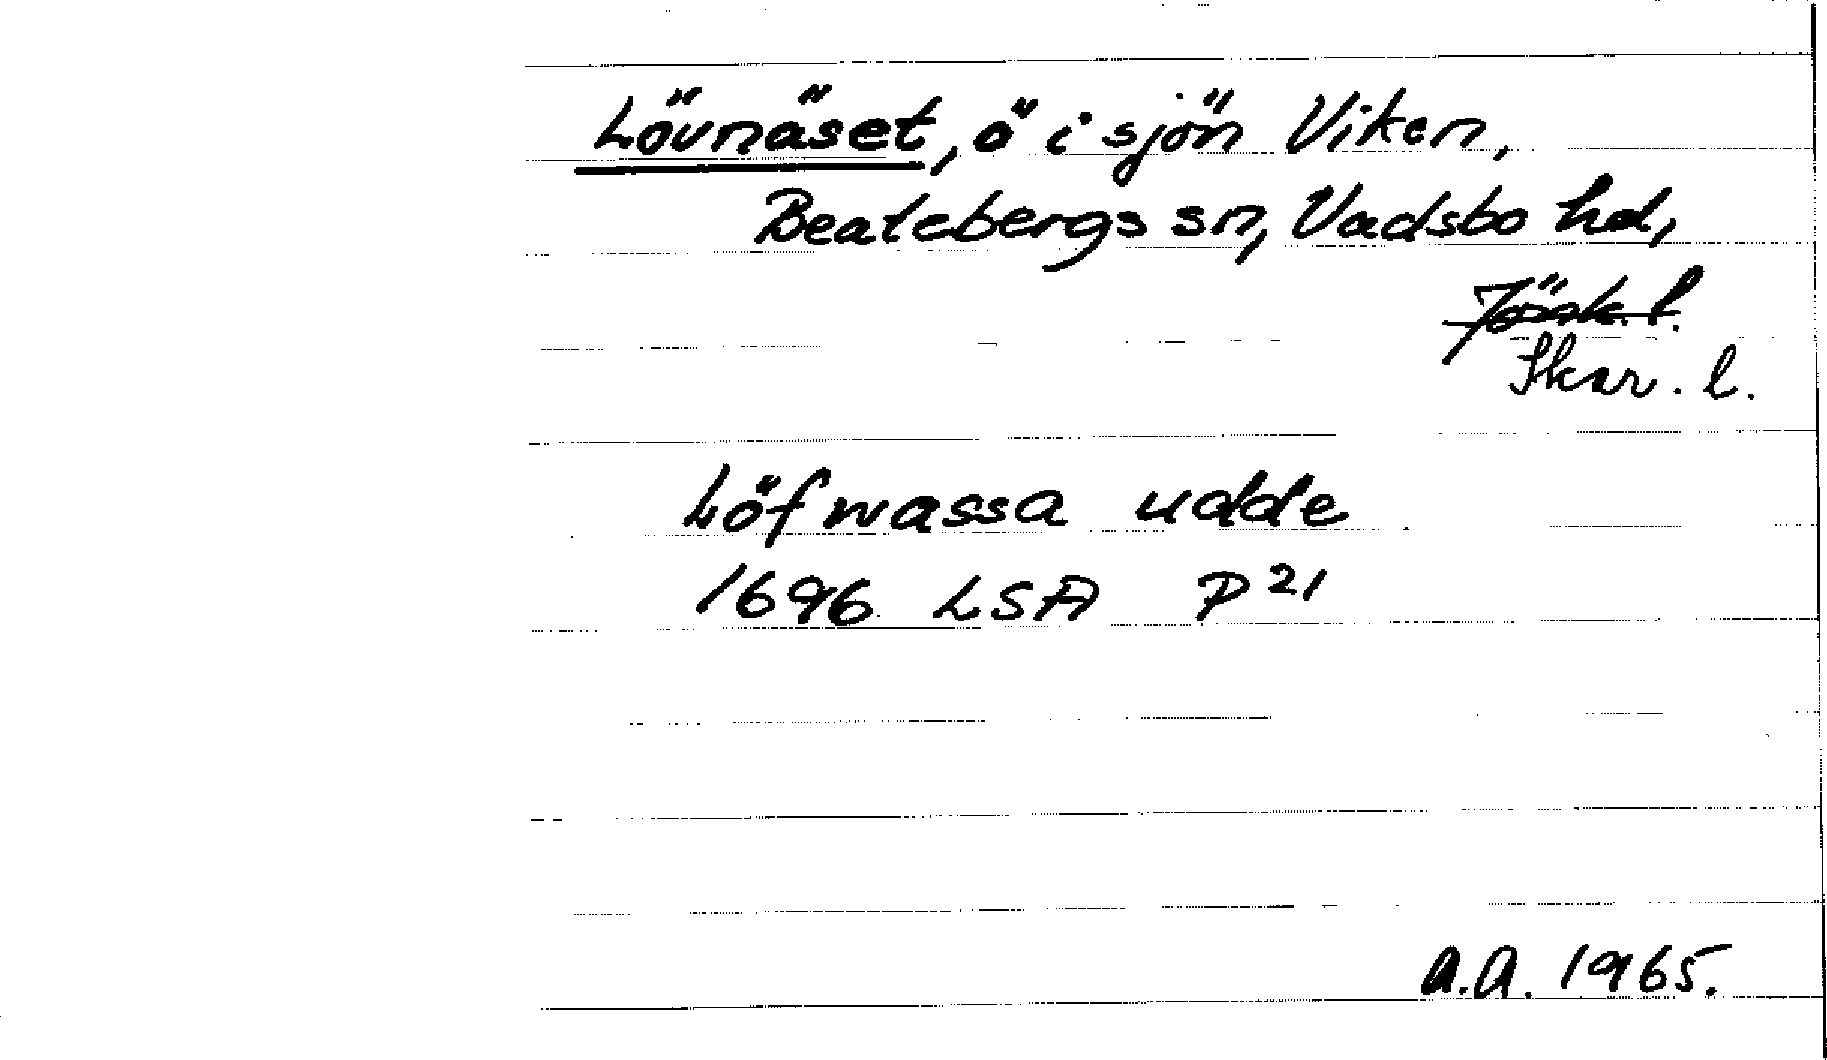 Lövnäset, ö i sjön Viken,
Beatebergs sn, Vadsbo hd,
Jönk. l.
Skar. l.
Löfwassa udde
1696 LSA P 21
A.A. 1965.